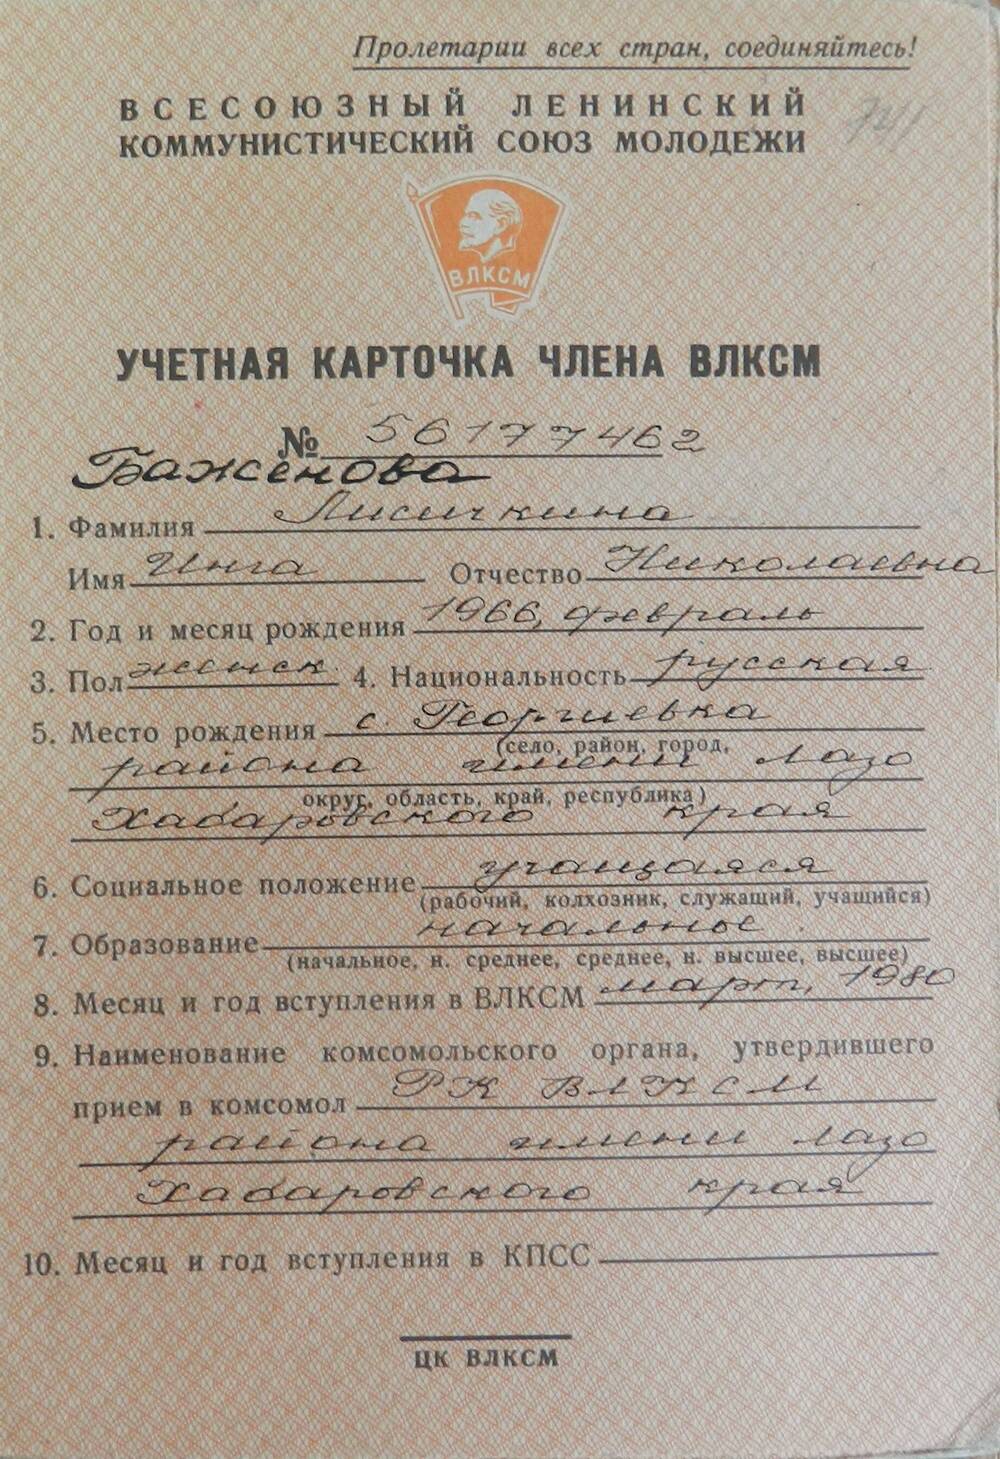 Пролетарии всех стран, соединяйтесь!
ВСЕСОЮЗНЫЙ ЛЕНИНСКИЙ
КОММУНИСТИЧЕСКИЙ СОЮЗ МОЛОДЕЖИ
ВЛКСМ
УЧЕТНАЯ КАРТОЧКА ЧЛЕНА ВЛКСМ
№ 56177462
Баженова
1. Фамилия Лисичкина
Имя Инга Отчество Николаевна
2. Год и месяц рождения 1966, февраль
3. Пол женск. 4. Национальность русская
5. Место рождения с. Георгиевка
(село, район, город,
района имени Лазо
округ, область, край, республика)
Хабаровского края
6. Социальное положение учащаяся
(рабочий, колхозник, служащий, учащийся)
7. Образование начальное
(начальное, н. среднее, среднее, н. высшее, высшее)
8. Месяц и год вступления в ВЛКСМ март, 1980
9. Наименование комсомольского органа, утвердившего
прием в комсомол РК ВЛКСМ
района имени Лазо
Хабаровского края
10. Месяц и год вступления в КПСС
ЦК ВЛКСМ